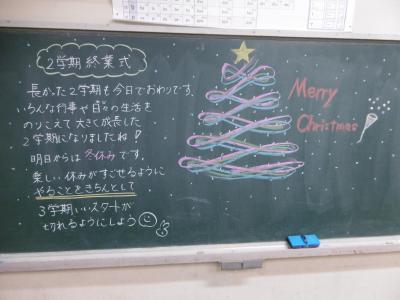 2学期終業式
長かった2学期も今日でおわりです。
いろんな行事や日々の生活を
のりこえて大きく成長した
2学期になりましたね!
明日からは冬休みです。
楽しい休みがすごせるように
やることをきちんとして
3学期いいスタートが
切れるようにしよう
Merry
Christmas